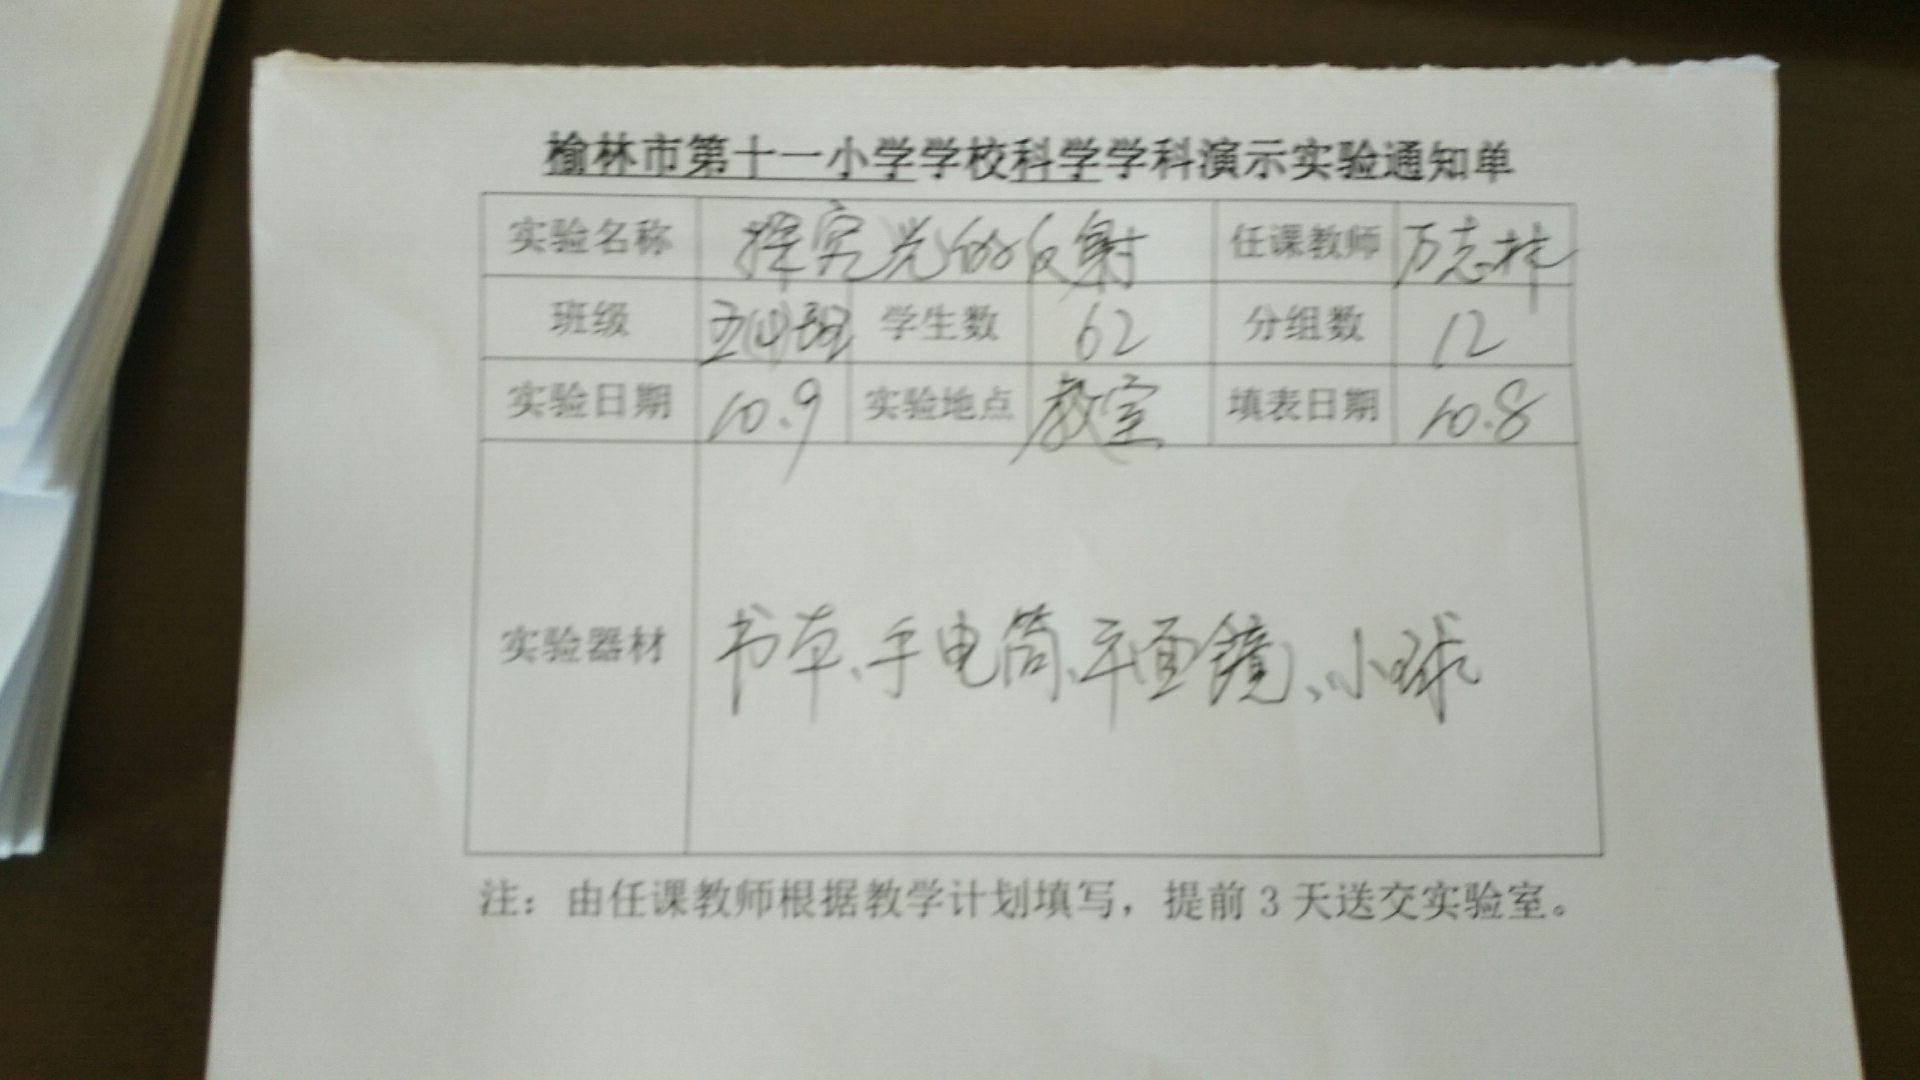 榆林市第十一小学学校科学学科演示实验通知单
实验名称 探究光的反射 任课教师 万志梓
班级 五(4)班 学生数 62 分组数 12
实验日期 10.9 实验地点 教室 填表日期 10.8
实验器材 书本、手电筒、平面镜、小球
注：由任课教师根据教学计划填写，提前3天送交实验室。